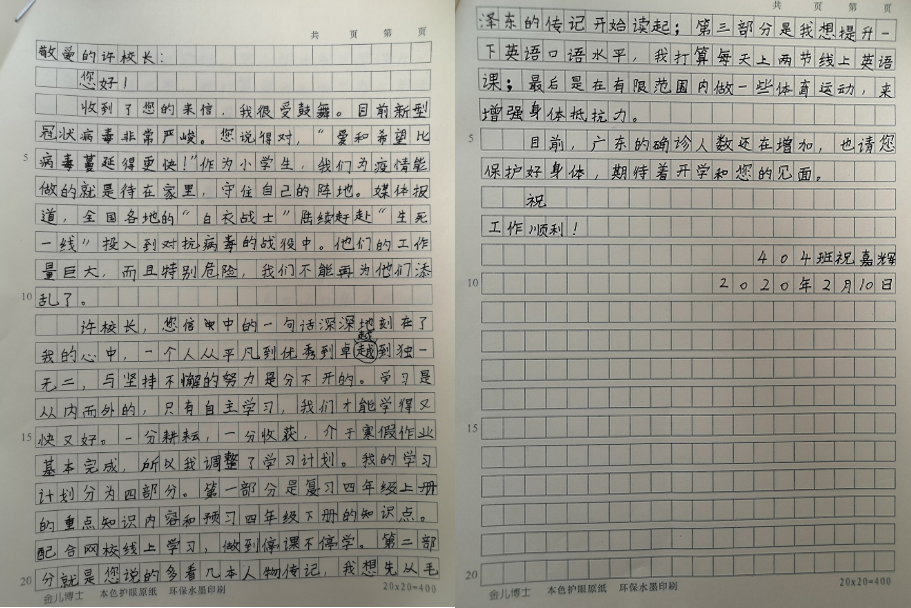 共 页 第 页
敬爱的许校长：
您好！
收到了您的来信，我很受鼓舞。目前新型
冠状病毒非常严峻。您说得对，“爱和希望比
5
病毒蔓延得更快！”作为小学生，我们为疫情能
做的就是待在家里，守住自己的阵地。媒体报
道，全国各地的“白衣战士”陆续赶赴“生死
一线”投入到对抗病毒的战役中。他们的工作
量巨大，而且特别危险，我们不能再为他们添
10
乱了。
许校长，您信中的一句话深深地刻在了
我的心中，一个人从平凡到优秀到卓越到独一
无二，与坚持不懈的努力是分不开的。学习是
从内而外的，只有自主学习，我们才能学得又
15
快又好。一分耕耘，一分收获，介于寒假作业
基本完成，所以我调整了学习计划。我的学习
计划分为四部分。第一部分是复习四年级上册
的重点知识内容和预习四年级下册的知识点。
配合网校线上学习，做到停课不停学。第二部
20
分就是您说的多看几本人物传记，我想先从毛
金儿博士 本色护眼原纸 环保水墨印刷 20×20=400
共 页 第 页
泽东的传记开始读起；第三部分是我想提升一
下英语口语水平，我打算每天上两节线上英语
课；最后是在有限范围内做一些体育运动，来
增强身体抵抗力。
5
目前，广东的确诊人数还在增加，也请您
保护好身体，期待着开学和您的见面。
祝
工作顺利！
404班祝嘉辉
10
2020年2月10日
15
20
金儿博士 本色护眼原纸 环保水墨印刷 20×20=400